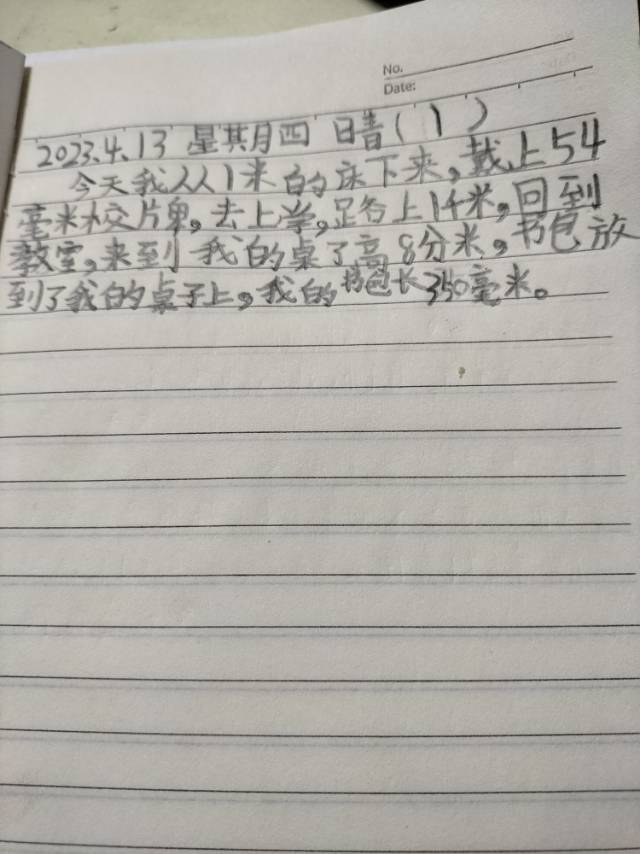 No.
Date:
2023.4.13 星其月四 日晴(1)
今天我从1米的床下来,戴上54
毫米校片单,去上学,足各上1千米,回到
教室,来到我的桌了高8分米,书包放
到了我的桌子上,我的书包长350毫米。